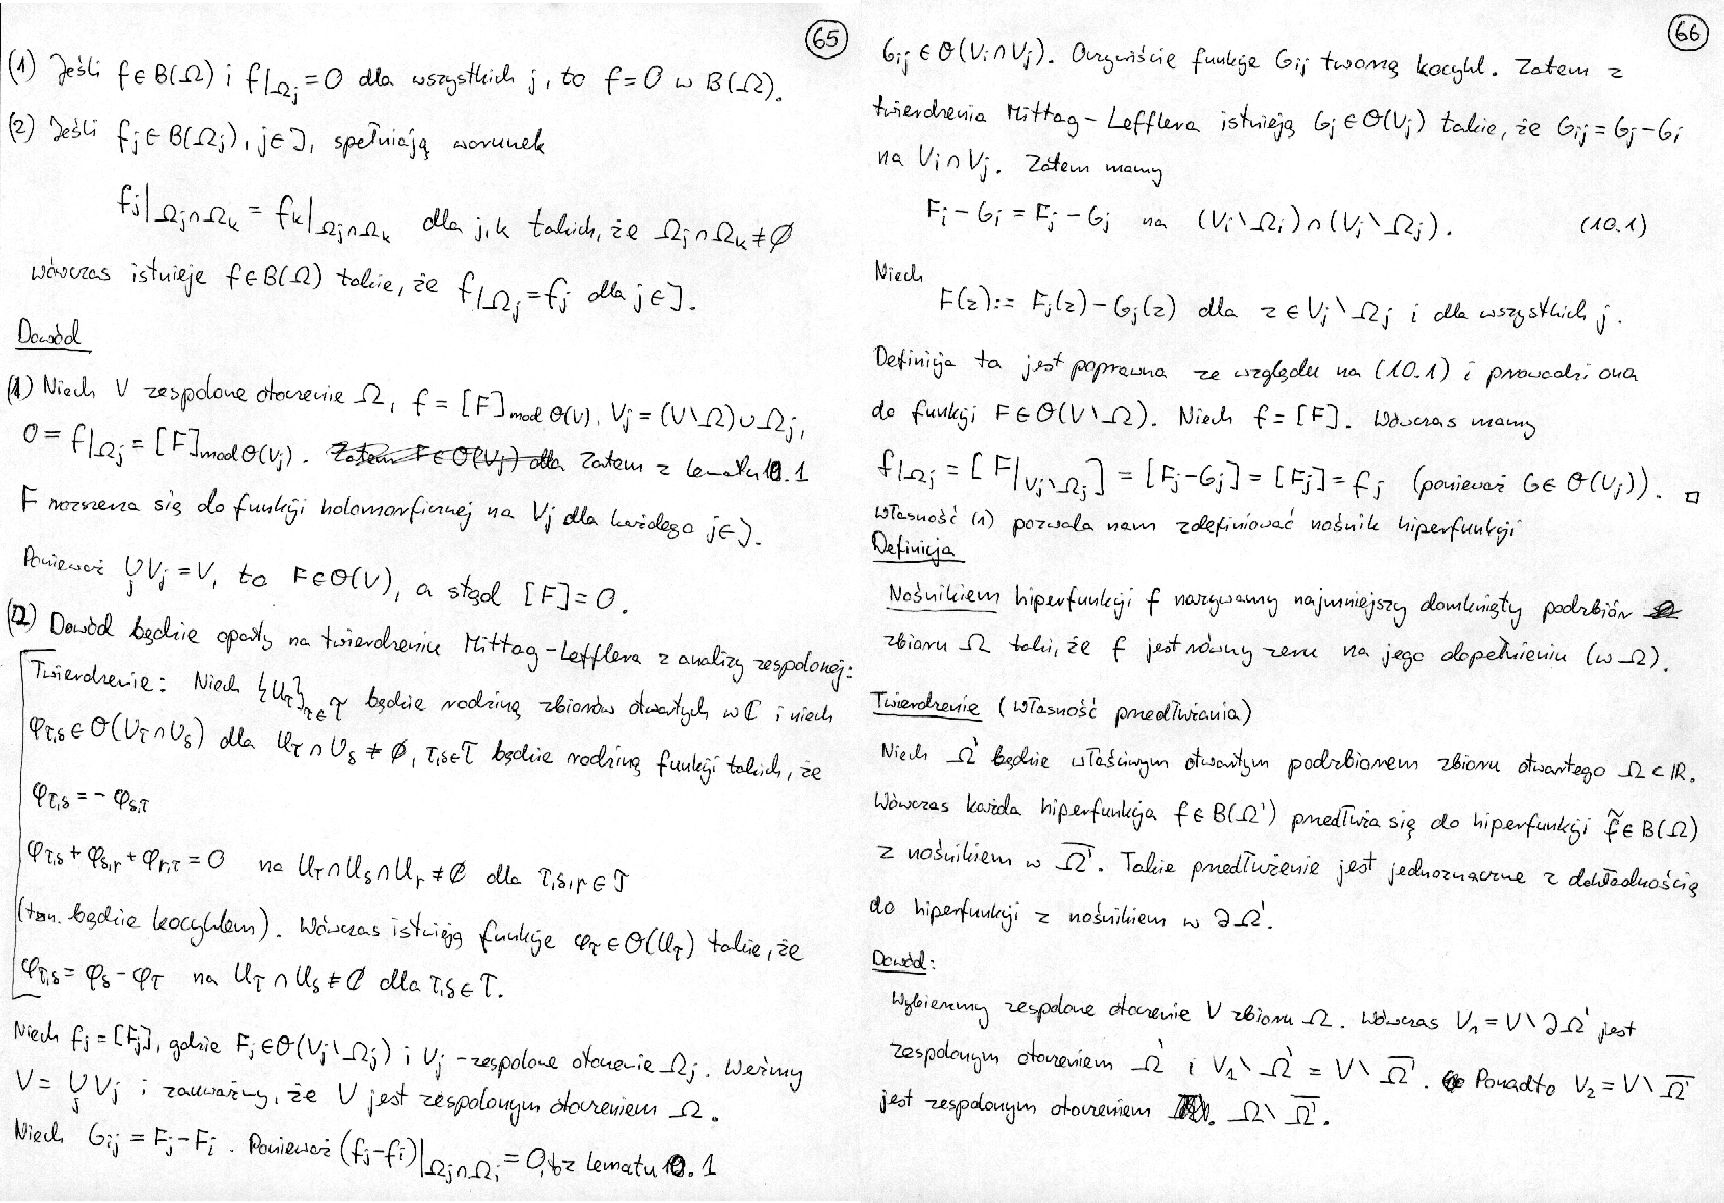 65
(1) Jeśli f∈B(Ω) i f|_{Ω_j}=0 dla wszystkich j, to f=0 w B(Ω).
(2) Jeśli f_j∈B(Ω_j), j∈J, spełniają warunek
f_j|_{Ω_j∩Ω_k} = f_k|_{Ω_j∩Ω_k} dla j,k takich, że Ω_j∩Ω_k≠∅
wówczas istnieje f∈B(Ω) takie, że f|_{Ω_j}=f_j dla j∈J.
Dowód
(1) Niech V zespolone otoczenie Ω, f=[F]_{mod O(V)}, V_j=(V\Ω)∪Ω_j,
0=f|_{Ω_j}=[F]_{mod O(V_j)}. Zatem z lematu 10.1
F rozszerza się do funkcji holomorficznej na V_j dla każdego j∈J.
Ponieważ ∪_j V_j=V, to F∈O(V), a stąd [F]=0.
(2) Dowód będzie oparty na twierdzeniu Mittag-Lefflera z analizy zespolonej:
Twierdzenie: Niech {U_τ}_{τ∈T} będzie rodziną zbiorów otwartych w ℂ i niech
φ_{τ,s}∈O(U_τ∩U_s) dla U_τ∩U_s≠∅, τ,s∈T będzie rodziną funkcji takich, że
φ_{τ,s}=-φ_{s,τ}
φ_{τ,s}+φ_{s,r}+φ_{r,τ}=0 na U_τ∩U_s∩U_r≠∅ dla τ,s,r∈T
(tzn. będzie kocyklem). Wówczas istnieją funkcje φ_τ∈O(U_τ) takie, że
φ_{τ,s}=φ_s-φ_τ na U_τ∩U_s≠∅ dla τ,s∈T.
Niech f_j=[F_j], gdzie F_j∈O(V_j\Ω_j) i V_j - zespolone otoczenie Ω_j. Weźmy
V=∪_j V_j i zauważmy, że V jest zespolonym otoczeniem Ω.
Niech G_{ij}=F_j-F_i. Ponieważ (f_j-f_i)|_{Ω_j∩Ω_i}=0, to z lematu 10.1
66
G_{ij}∈O(V_i∩V_j). Oczywiście funkcje G_{ij} tworzą kocykl. Zatem z
twierdzenia Mittag-Lefflera istnieją G_j∈O(V_j) takie, że G_{ij}=G_j-G_i
na V_i∩V_j. Zatem mamy
F_i-G_i=F_j-G_j na (V_i\Ω_i)∩(V_j\Ω_j). (10.1)
Niech
F(z):=F_j(z)-G_j(z) dla z∈V_j\Ω_j i dla wszystkich j.
Definicja ta jest poprawna ze względu na (10.1) i prowadzi ona
do funkcji F∈O(V\Ω). Niech f=[F]. Wówczas mamy
f|_{Ω_j}=[F|_{V_j\Ω_j}]=[F_j-G_j]=[F_j]=f_j (ponieważ G∈O(V_j)). □
Własność (1) pozwala nam zdefiniować nośnik hiperfunkcji
Definicja
Nośnikiem hiperfunkcji f nazywamy najmniejszy domknięty podzbiór
zbioru Ω taki, że f jest równy zeru na jego dopełnieniu (w Ω).
Twierdzenie (własność przedłużania)
Niech Ω' będzie właściwym otwartym podzbiorem zbioru otwartego Ω⊂ℝ.
Wówczas każda hiperfunkcja f∈B(Ω') przedłuża się do hiperfunkcji f̃∈B(Ω)
z nośnikiem w \overline{Ω'}. Takie przedłużenie jest jednoznaczne z dokładnością
do hiperfunkcji z nośnikiem w ∂Ω'.
Dowód:
Wybierzmy zespolone otoczenie V zbioru Ω. Wówczas V_1=V\∂Ω' jest
zespolonym otoczeniem Ω' i V_1\Ω'=V\\overline{Ω'}. Ponadto V_2=V\\overline{Ω'}
jest zespolonym otoczeniem Ω\\overline{Ω'}.